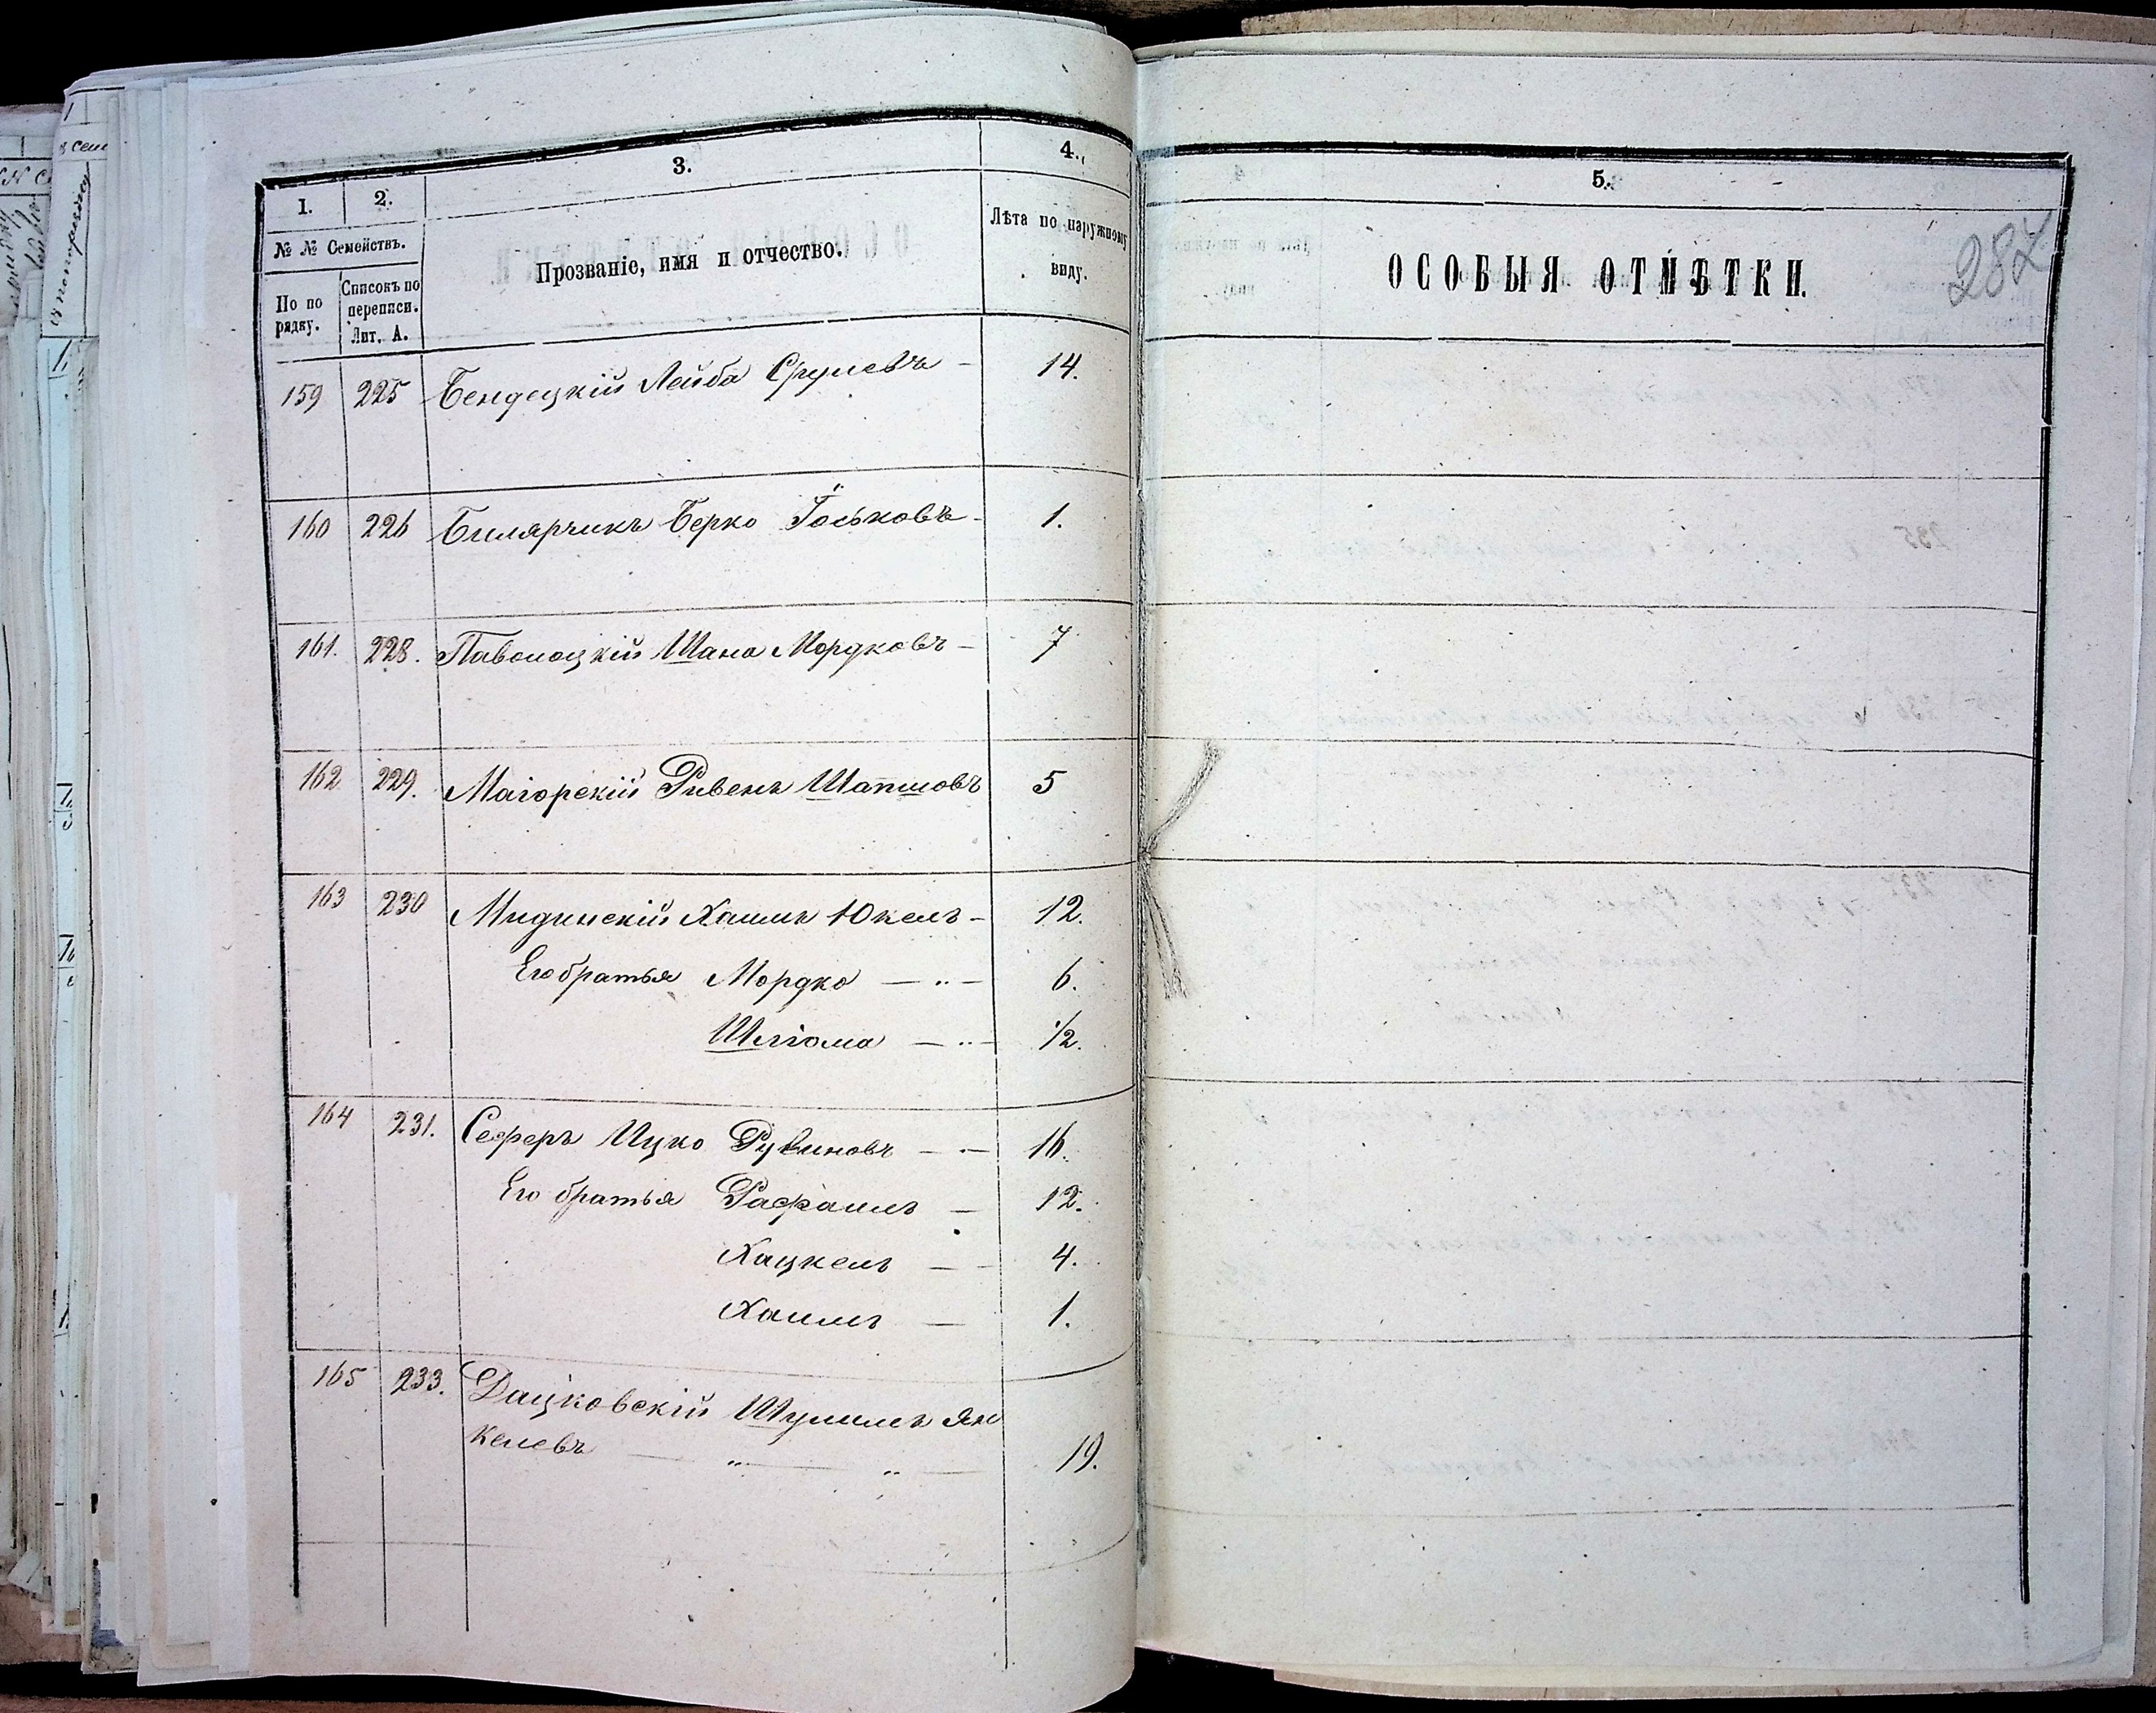 1. 2. 3. 4. 5.
№ № Семействъ.
По по рядку. Списокъ по переписи. Лит. А. Прозваніе, имя и отчество. Лѣта по наружному виду. ОСОБЫЯ ОТМѢТКИ.
287
159 225 Бендецкій Лейба Срулевъ - 14.
160 226 Билярчикъ Берко Іоськовъ - 1.
161. 228. Паволоцкій Шана Мордковъ - 7
162 229. Магорскій Ривенъ Шапшовъ 5
163 230 Мидинскій Хаимъ Юкелъ - 12.
Его братья Мордко — " — 6.
Шліома — " — 1/2.
164 231. Сеферъ Ицко Рувиновъ — " — 16.
Его братья Рафаилъ — 12.
Хацкель — 4.
Хаимъ — 1.
165 233. Дацковскій Шулимъ Ян
келевъ — " — " — 19.